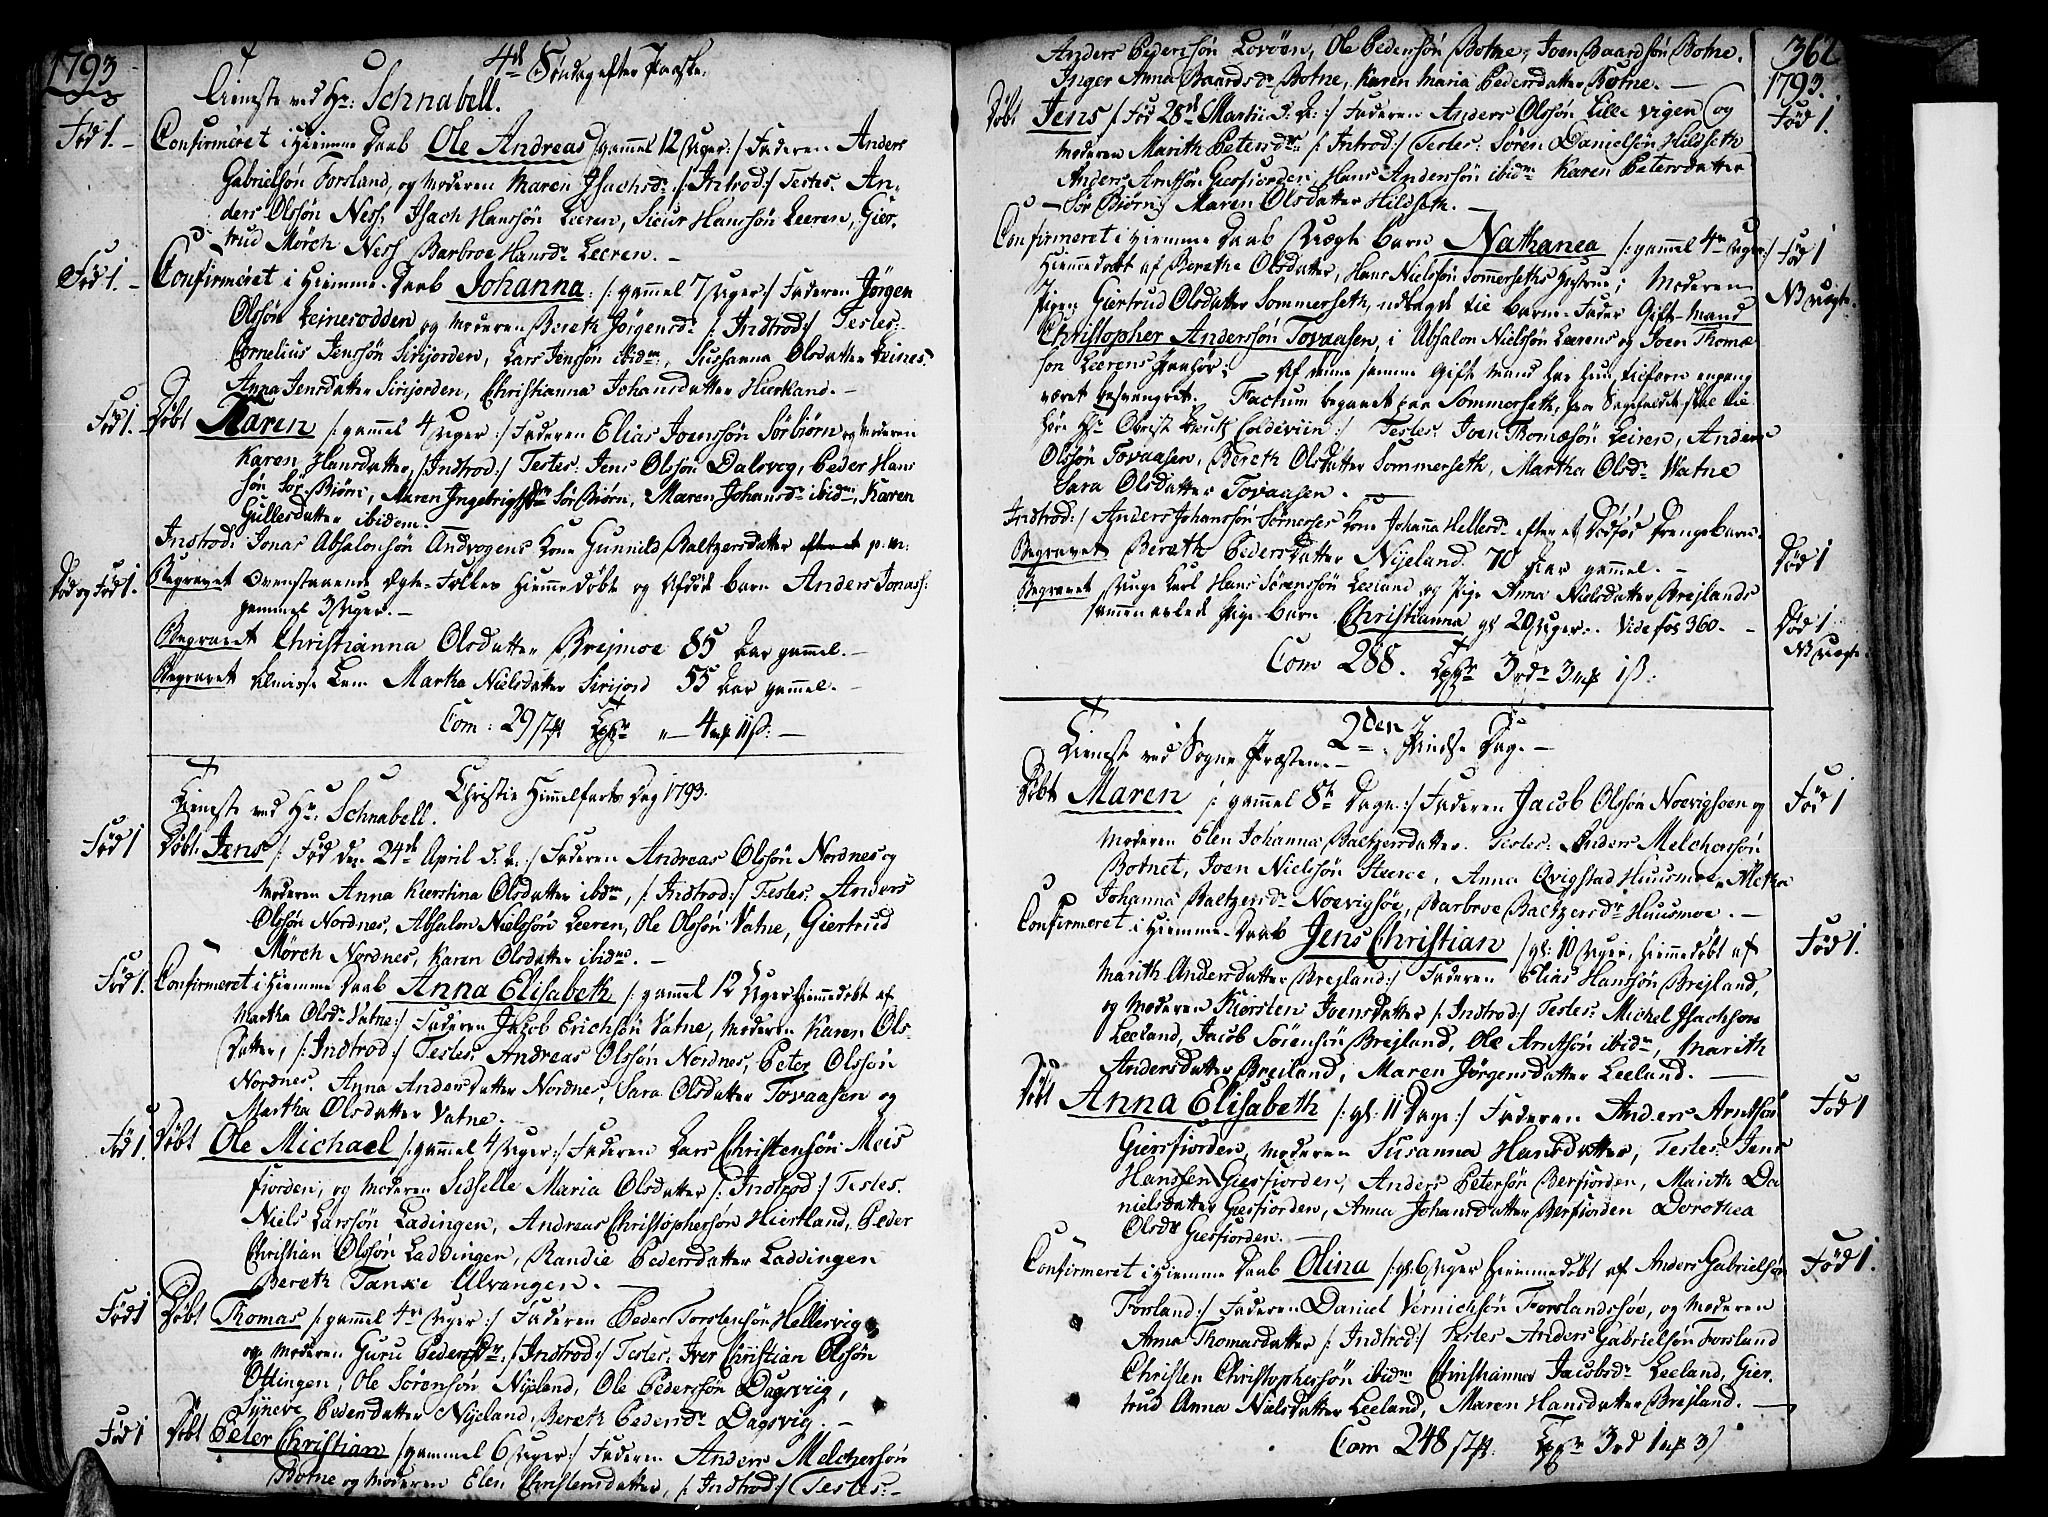 1793
4de Søndag efter Paaske.
Tieneste ved Hr: Schnabell.
Fød 1. Confirmeret i Hiemme Daab Ole Andreas /: gammel 12 Uger :/ Faderen Anders
Gabrielsøn Forsland, og Moderen Maren Isachsdr: /: Introd :/ Testes. An-
ders Olssøn Ness, Isach Hanssøn Leeren, Sivert Hanssøn Leeren, Gier-
trud Mørch Ness, Barbroe Hansdr Leeren.
Fød 1. Confirmeret i Hiemme-Daab Johanna: /: gammel 7 Uger :/ Faderen Jørgen
Olssøn Leinesodden og Moderen Bereth Jørgensdr: /: Indtrod :/ Testes:
Cornelius Jenssøn Sirijorden, Lars Jenssøn ibidm, Sussanna Olsdatter Leines.
Anna Jensdatter Sirijorden, Christianna Johansdatter Hiertland.
Fød 1. Døbt Karen /: gammel 4 Uger :/ Faderen Elias Joenssøn Sørbiørn og Moderen
Karen Hansdatter, /: Indtrod :/ Testes: Jens Olssøn Dalsveg, Peder Hans
søn Sør Biørn, Maren Ingebrigtsdr Sør Biørn, Maren Johansdr ibidm, Karen
Gullesdatter ibidem.
Introd: Jonas Absalonsøn Andvogens Kone Gunnild Baltzersdatter p. m:
Død og Fød 1. Begravet Ovenstaaende Egte-Folkes Hiemmedøbt og Afdøde barn Anders Jonass:
gammel 3 Uger.
Begravet Christianna Olsdatter Brejmoe 85 Aar gammel.
Begravet Almisse Lem Martha Nielsdatter Sirijord 55 Aar gammel.
Com: 29
Christi Himmelfarts Dag 1793.
Tieneste ved Hr: Schnabell.
Fød 1 Døbt Jens /: Fød den 24de April d. A: :/ Faderen Andreas Olssøn Nordnes og
Moderen Anna Kierstina Olsdatter ibidm, /: Indtrod :/ Testes: Anders
Olssøn Nordnes, Absalon Nielssøn Leeren, Ole Olssøn Vatne, Giertrud
Mørch Nordnes, Karen Olsdatter ibidm.
Fød 1. Confirmeret i Hiemme Daab Anna Elisabeth /: gammel 12 Uger Hiemmedøbt af
Martha Olsdr Vatne :/ Faderen Jacob Erichsøn Vatne, Moderen Karen Ols-
datter, /: Indtrod :/ Testes: Andreas Olssøn Nordnes, Peter Olssøn
Nordnes. Anna Andersdatter Nordnes, Sara Olsdatter Tovaasen og
Martha Olsdatter Vatne.
Fød 1. Døbt Ole Michael /: gammel 4 Uger :/ Faderen Lars Christensøn Meis
fiorden, og Moderen Sidselle Maria Olsdatter /: Indtrod :/ Testes.
Niels Larssøn Ladingen, Andreas Christophersøn Hiertland, Peder
Christian Olssøn Laddingen, Randie Pedersdatter Laddingen
Bereth Tanke Ulvangen.
Fød 1 Døbt Thomas /: gammel 4re Uger :/ Faderen Peder Torstensøn Hellervig
og Moderen Guru Pedersdr: /: Indtrod :/ Testes: Iver Christian Olssøn
Ottingen, Ole Sørensøn Nijeland, Ole Pederssøn Dagsviig,
Syneve Pedersdatter Nijeland, Bereth Pedersdr Dagsvig.
Fød 1 Døbt Peter Christian /: gammel 6 Uger :/ Faderen Anders Melchersøn
Botne og Moderen Elen Christensdatter, /: Indtrod :/ Testes:
362
1793.
Anders Pedersøn Lovøen, Ole Pedersøn Botne, Joen Baardsøn Botne.
Inger Anna Baardsdr Botne, Karen Maria Pedersdatter Botne.
Døbt Jens /: Fød 28de Martii d. A: :/ Faderen Anders Olssøn Lille vigen og Fød 1.
Moderen Marith Petersdr /: Introd :/ Testes: Søren Danielsøn Hildseth
Anders Arntsøn Giersfiorden, Hans Andersøn ibidm Karen Petersdatter
Sør Biørn, Maren Olsdatter Hildseth.
Confirmeret i Hiemme Daab Uægte barn Nathanea /: gammel 4re Uger :/ Fød 1
Hiemmedøbt af Berethe Olsdatter, Hans Nielssøn Sommerseths Hustrue; Moderen NB uægte.
Pigen Giertrud Olsdatter Sommerseth, udlagde til barne-Fader Gift-Mand
Christopher Anderssøn Tovaasen, i Absalon Nielssøn Leerens og Joen Thomæ
søn Leerens Paahør; Af denne samme Gift Mand har hun tilforn engang
været besvangret. Factum begaaet paa Sommerseth,
høre Hr Obrist Coldeviin :/ Testes: Joen Thomæsøn Leiren, Anders
Olssøn Tovaasen, Bereth Olsdatter Sommerseth, Martha Olsdr Vatne
Sara Olsdatter Tovaasen.
Indtrod :/ Anders Johanssøn Sørneses Kone Johanna Hellesdr efter et Dødfød Drengebarn.
Begravet Bereth Pedersdatter Nijeland 70 Aar gammel. Død 1
Begravet Unge Karl Hans Sørenssøn Leeland og Pige Anna Nielsdatter Brejlands
sammenavlede Pige-barn Christianna gl 20 Uger. Vide fol 360. Død 1
NB uægte
Com 288.
2den Pindse Dag.
Tieneste ved Sogne Præsten.
Døbt Maren /: gammel 8te Dage :/ Faderen Jacob Olssøn Noevigsoen og Fød 1
Moderen Elen Johanna Baltzersdatter. Testes: Anders Melchersøn
Botnet, Joen Nielssøn, Anna Qvigstad Huusmoe, Metha
Johanna Baltzersdr Noevigsøe, Barbroe Baltzersdr Huusmoe.
Confirmeret i Hiemme-Daab Jens Christian /: gl: 10 Uger, Hiemmedøbt af Fød 1.
Marith Andersdatter Brejland :/ Faderen Elias Hanssøn Brejland,
og Moderen Kiersten Joensdatter /: Indtrod :/ Testes: Michel Isachsøn
Leeland, Jacob Sørensøn Brejland, Ole Arntsøn ibidm, Marith
Andersdatter Brejland, Maren Jørgensdatter Leeland.
Døbt Anna Elisabeth /: gl: 11 Dage :/ Faderen Anders Arntsøn Fød 1
Giersfiorden, Moderen Susanna Hansdatter, Testes: Jens
Hanssen Giersfiorden, Anders Petersøn Berfiorden, Marith Da
nielsdatter Giersfiorden, Anna Johansdatter Berfiorden Dorothea
Olsdr Giersfiorden.
Confirmeret i Hiemme Daab Olina /: gl: 6 Uger Hiemmedøbt af Anders Gabrielsøn Fød 1.
Forsland :/ Faderen Daniel Vernichsøn Forslandssøe, og Moderen
Anna Thomasdatter /: Indtrod :/ Testes Anders Gabrielsøn Forsland
Christen Christophersøn ibidm Christianna Jacobsdr Leeland, Gier-
trud Anna Nielsdatter Leeland, Maren Hansdatter Brejland.
Com 248